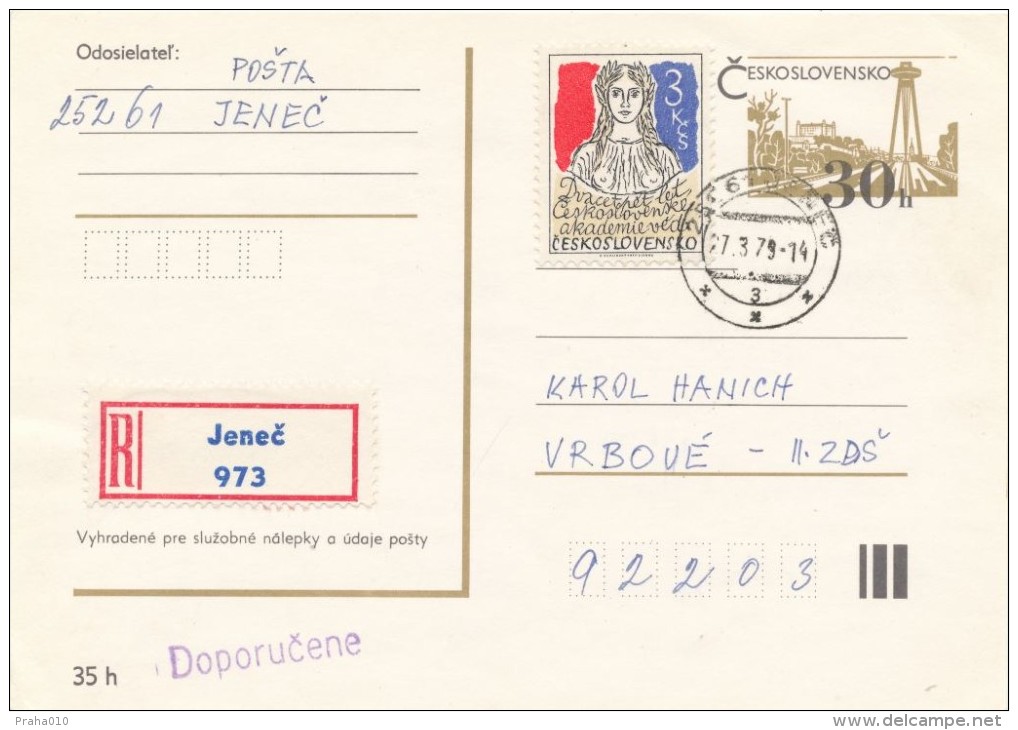 Odosielateľ:
POŠTA
252 61 JENEČ
3
Kčs
Dvacet pět let
Československé
akademie věd
ČESKOSLOVENSKO
ČESKOSLOVENSKO
30h
27.3.79-14
3
KAROL HANICH
VRBOVÉ - II. ZDŠ
R
Jeneč
973
Vyhradené pre služobné nálepky a údaje pošty
92203
Doporučene
35 h
Praha010
www.delcampe.net